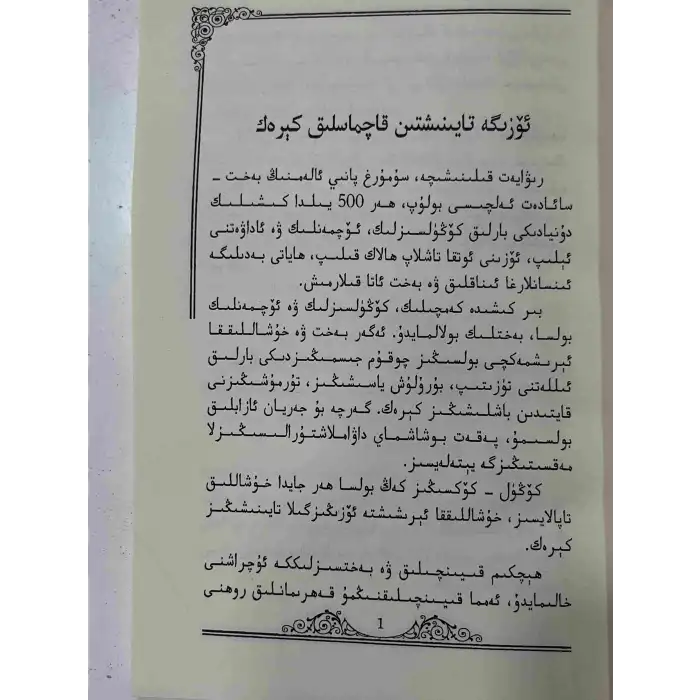 ئۆزىگە تايىنىشتىن قاچماسلىق كېرەك
رىۋايەت قىلىنىشىچە، سۇمۇرغ پانىي ئالەمنىڭ بەخت –
سائادەت ئەلچىسى بولۇپ، ھەر 500 يىلدا كىشىلىك
دۇنيادىكى بارلىق كۆڭۈلسىزلىك، ئۆچمەنلىك ۋە ئاداۋەتنى
ئېلىپ، ئۆزىنى ئوتقا تاشلاپ ھالاك قىلىپ، ھاياتى بەدىلىگە
ئىنسانلارغا ئىناقلىق ۋە بەخت ئاتا قىلارمىش.
بىر كىشىدە كەمچىلىك، كۆڭۈلسىزلىك ۋە ئۆچمەنلىك
بولسا، بەختلىك بولالمايدۇ. ئەگەر بەخت ۋە خۇشاللىققا
ئېرىشمەكچى بولسىڭىز چوقۇم جىسمىڭىزدىكى بارلىق
ئىللەتنى تۈزىتىپ، بۇرۇلۇش ياسىشىڭىز، تۇرمۇشىڭىزنى
قايتىدىن باشلىشىڭىز كېرەك. گەرچە بۇ جەريان ئازابلىق
بولسىمۇ، پەقەت بوشاشماي داۋاملاشتۇرالىسىڭىزلا
مەقسىتىڭىزگە يېتەلەيسىز.
كۆڭۈل – كۆكسىڭىز كەڭ بولسا ھەر جايدا خۇشاللىق
تاپالايسىز، خۇشاللىققا ئېرىشىشتە ئۆزىڭىزگىلا تايىنىشىڭىز
كېرەك.
ھېچكىم قىيىنچىلىق ۋە بەختسىزلىككە ئۇچراشنى
خالىمايدۇ، ئەمما قىيىنچىلىقنىڭمۇ قەھرىمانلىق روھنى
1